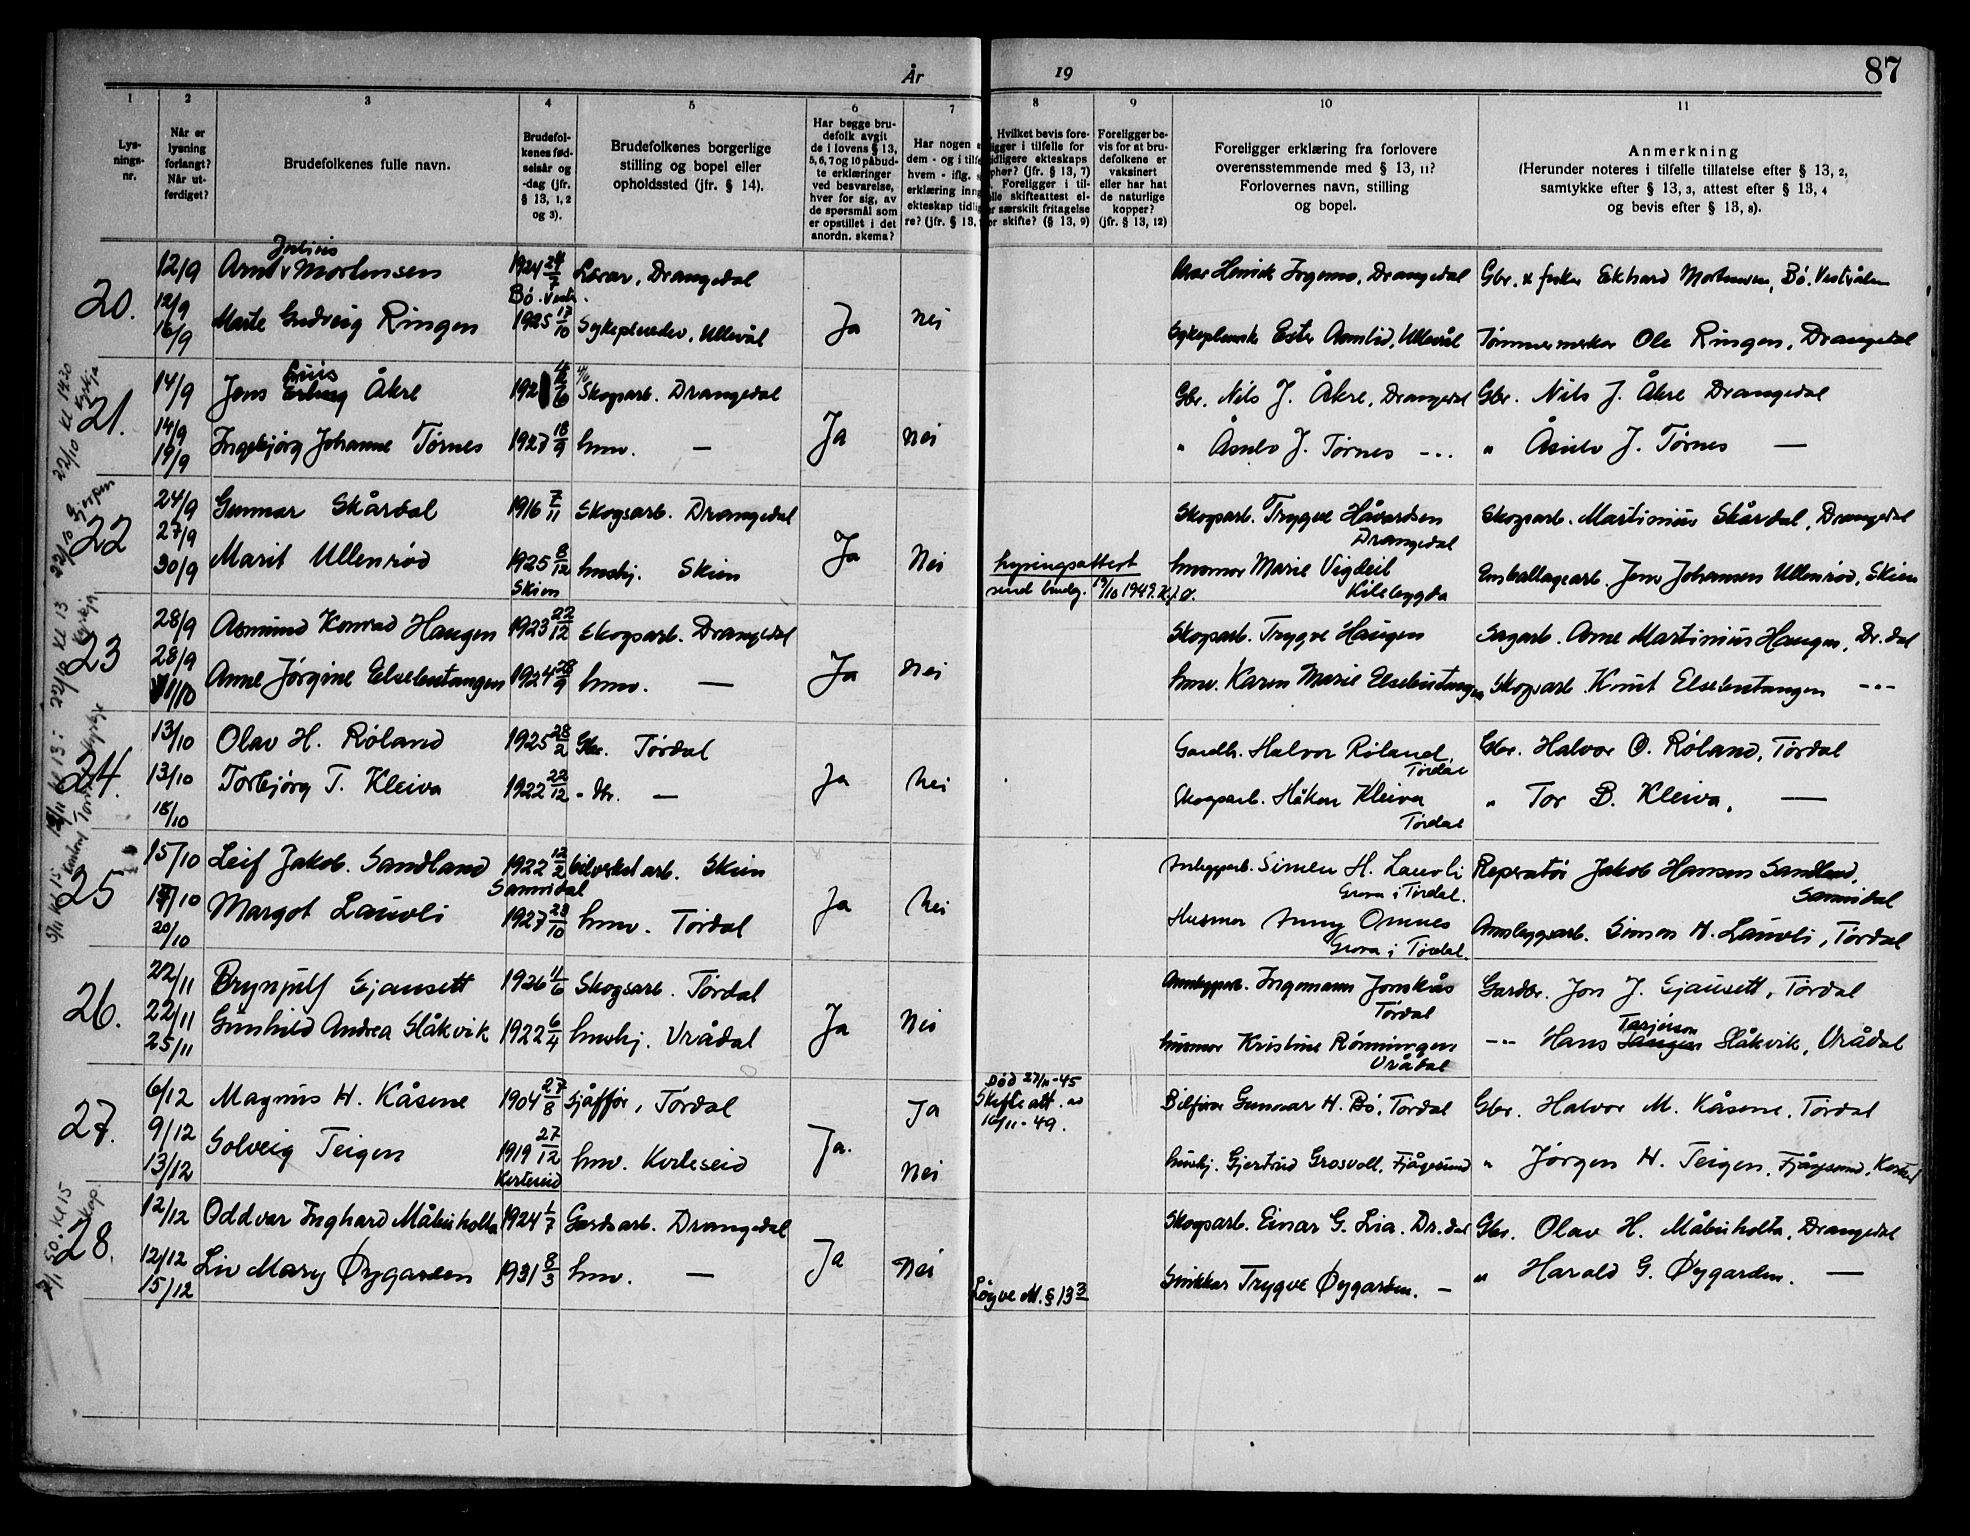 År 19
87
1 2 3 4 5 6 7 8 9 10 11
Lys-
nings-
nr.
Når er
lysning
forlangt?
Når ut-
ferdiget?
Brudefolkenes fulle navn.
Brudefol-
kenes fød-
selsår og
-dag (jfr.
§ 13, 1, 2
og 3).
Brudefolkenes borgerlige
stilling og bopel eller
opholdssted (jfr. § 14).
Har begge bru-
defolk avgit
de i lovens § 13,
5, 6, 7 og 10 påbud-
te erklæringer
ved besvarelse,
hver for sig, av
de spørsmål som
er opstillet i det
anordn. skema?
Har nogen
dem - og i tilfe
hvem - iflg.
erklæring inng
ekteskap tidli
re? (jfr. § 13,
Hvilket bevis fore-
ligger i tilfelle for
tidligere ekteskaps
ophør? (jfr. § 13, 7)
Foreligger i til-
felle skifteattest el-
er særskilt fritagelse
or skifte? (§ 13, 9)
Foreligger be-
vis for at bru-
defolkene er
vaksinert
eller har hat
de naturlige
kopper?
(jfr. § 13, 12)
Foreligger erklæring fra forlovere
overensstemmende med § 13, 11?
Forlovernes navn, stilling
og bopel.
Anmerkning
(Herunder noteres i tilfelle tillatelse efter § 13, 2,
samtykke efter § 13, 3, attest efter § 13, 4
og bevis efter § 13, 8).
20. 12/9 Arnt Mortensen 1924 24/7 Lærar, Drangedal
Bø. Vestr.
12/9 16/9 Marte Gudveig Ringen 1925 17/10 Ullevål Ja Nei
Drangedal Gbr. & fisker Ekhard Mortensen, Bø. Vestrålen
Ester Åsmlid, Ullevål Tømmermerker Ole Ringen, Drangedal
21. 14/9 Jens Åkre Skogsarb. Drangedal
14/9 19/9 Ingebjørg Johanne Tørnes 1927 18/9 hmv. — Ja Nei
Gbr. Nils J. Åkre, Drangedal Gbr. Nils J. Åkre Drangedal
" J. Tørnes -"- " J. Tørnes —
22 24/9 Gunnar Skårdal 1916 7/11 Skogsarb. Drangedal
27/9
30/9 Marit Ullenrød 1925 8/12 hushj. Skien Ja Nei
Skien
Skogsarb. Trygve Håvardsen Skogsarb. Martinius Skårdal, Drangedal
Drangedal
husmor Marie Vigdeil Emballagearb. Jens Johansen Ullenrød, Skien
Kilebygda
lysingsattest
19/10 1949.
23 28/9 Asmund Konrad Haugen 1923 22/12 Skogsarb. Drangedal
28/9 1/10 Anne Jørgine Elsebutangen 1924 28/9 hmv. — Ja Nei
Skogsarb. Trygve Haugen Sagarb. Arne Martinius Haugen, Dr.dal
hmv. Karen Marie Elsebutangen Skogsarb. Knut Elsebutangen -"-
24. 13/10 Olav H. Røland 1925 28/2 Gbr. Tørdal
13/10 18/10 Torbjørg T. Kleiva 1922 22/12 — Ja Nei
Gardbr. Halvor Røland, Gbr. Halvor O. Røland, Tørdal
Tørdal
Skogsarb. Håkon Kleiva " Tor B. Kleiva, —
Tørdal
25 15/10 Leif Jakob Sandland 1922 12/2 bilverkst.arb. Skien
Sannidal
17/10 20/10 Margot Lauvli 1927 28/10 hmv. Tørdal Ja Nei
Anleggsarb. Simen H. Lauvli Reperatør Jakob Hansen Sandland,
Grova i Tørdal. Sannidal
Husmor Anny Omnes Annleggsarb. Simen H. Lauvli, Tørdal
Grova i Tørdal.
26. 22/11 Brynjulf Gjausett 1926 11/6 Skogsarb. Tørdal
22/11 25/11 Gunhild Andrea Slåkvik 1922 6/4 hushj. Vrådal Ja Nei
Annleggsarb. Ingemann Jonskås Gardbr. Jon J. Gjausett, Tørdal
Tørdal
husmor Kristine Rønningen -"- Hans Tarjeison Slåkvik, Vrådal
Vrådal
27. 6/12 Magnus H. Kåsene 1904 27/8 Sjåffør, Tørdal Ja
9/12
13/12 Solveig Teigen 1919 27/12 hmv. Kviteseid Ja. Nei
Kviteseid
Død 27/11-45
Skifte att. av
16/11-49.
Bilfører Gunnar H. Bø, Tørdal Gbr. Halvor M. Kåsene, Tørdal
hushj. Gjertrud Grosvoll, Fjågesund " Jørgen H. Teigen, Fjågesund,
28. 12/12 Oddvar Inghard Måbuholta 1924 1/7 Gardsarb. Drangedal
12/12 15/12 Liv Mary Øygarden 1931 8/3 hmv. — Ja Nei
Løyve M. § 13 3
Skogsarb. Einar G. Lia. Dr.dal Gbr. Olav H. Måbuholta, Drangedal
Snikkar Trygve Øygarden. — " Harald G. Øygarden. —